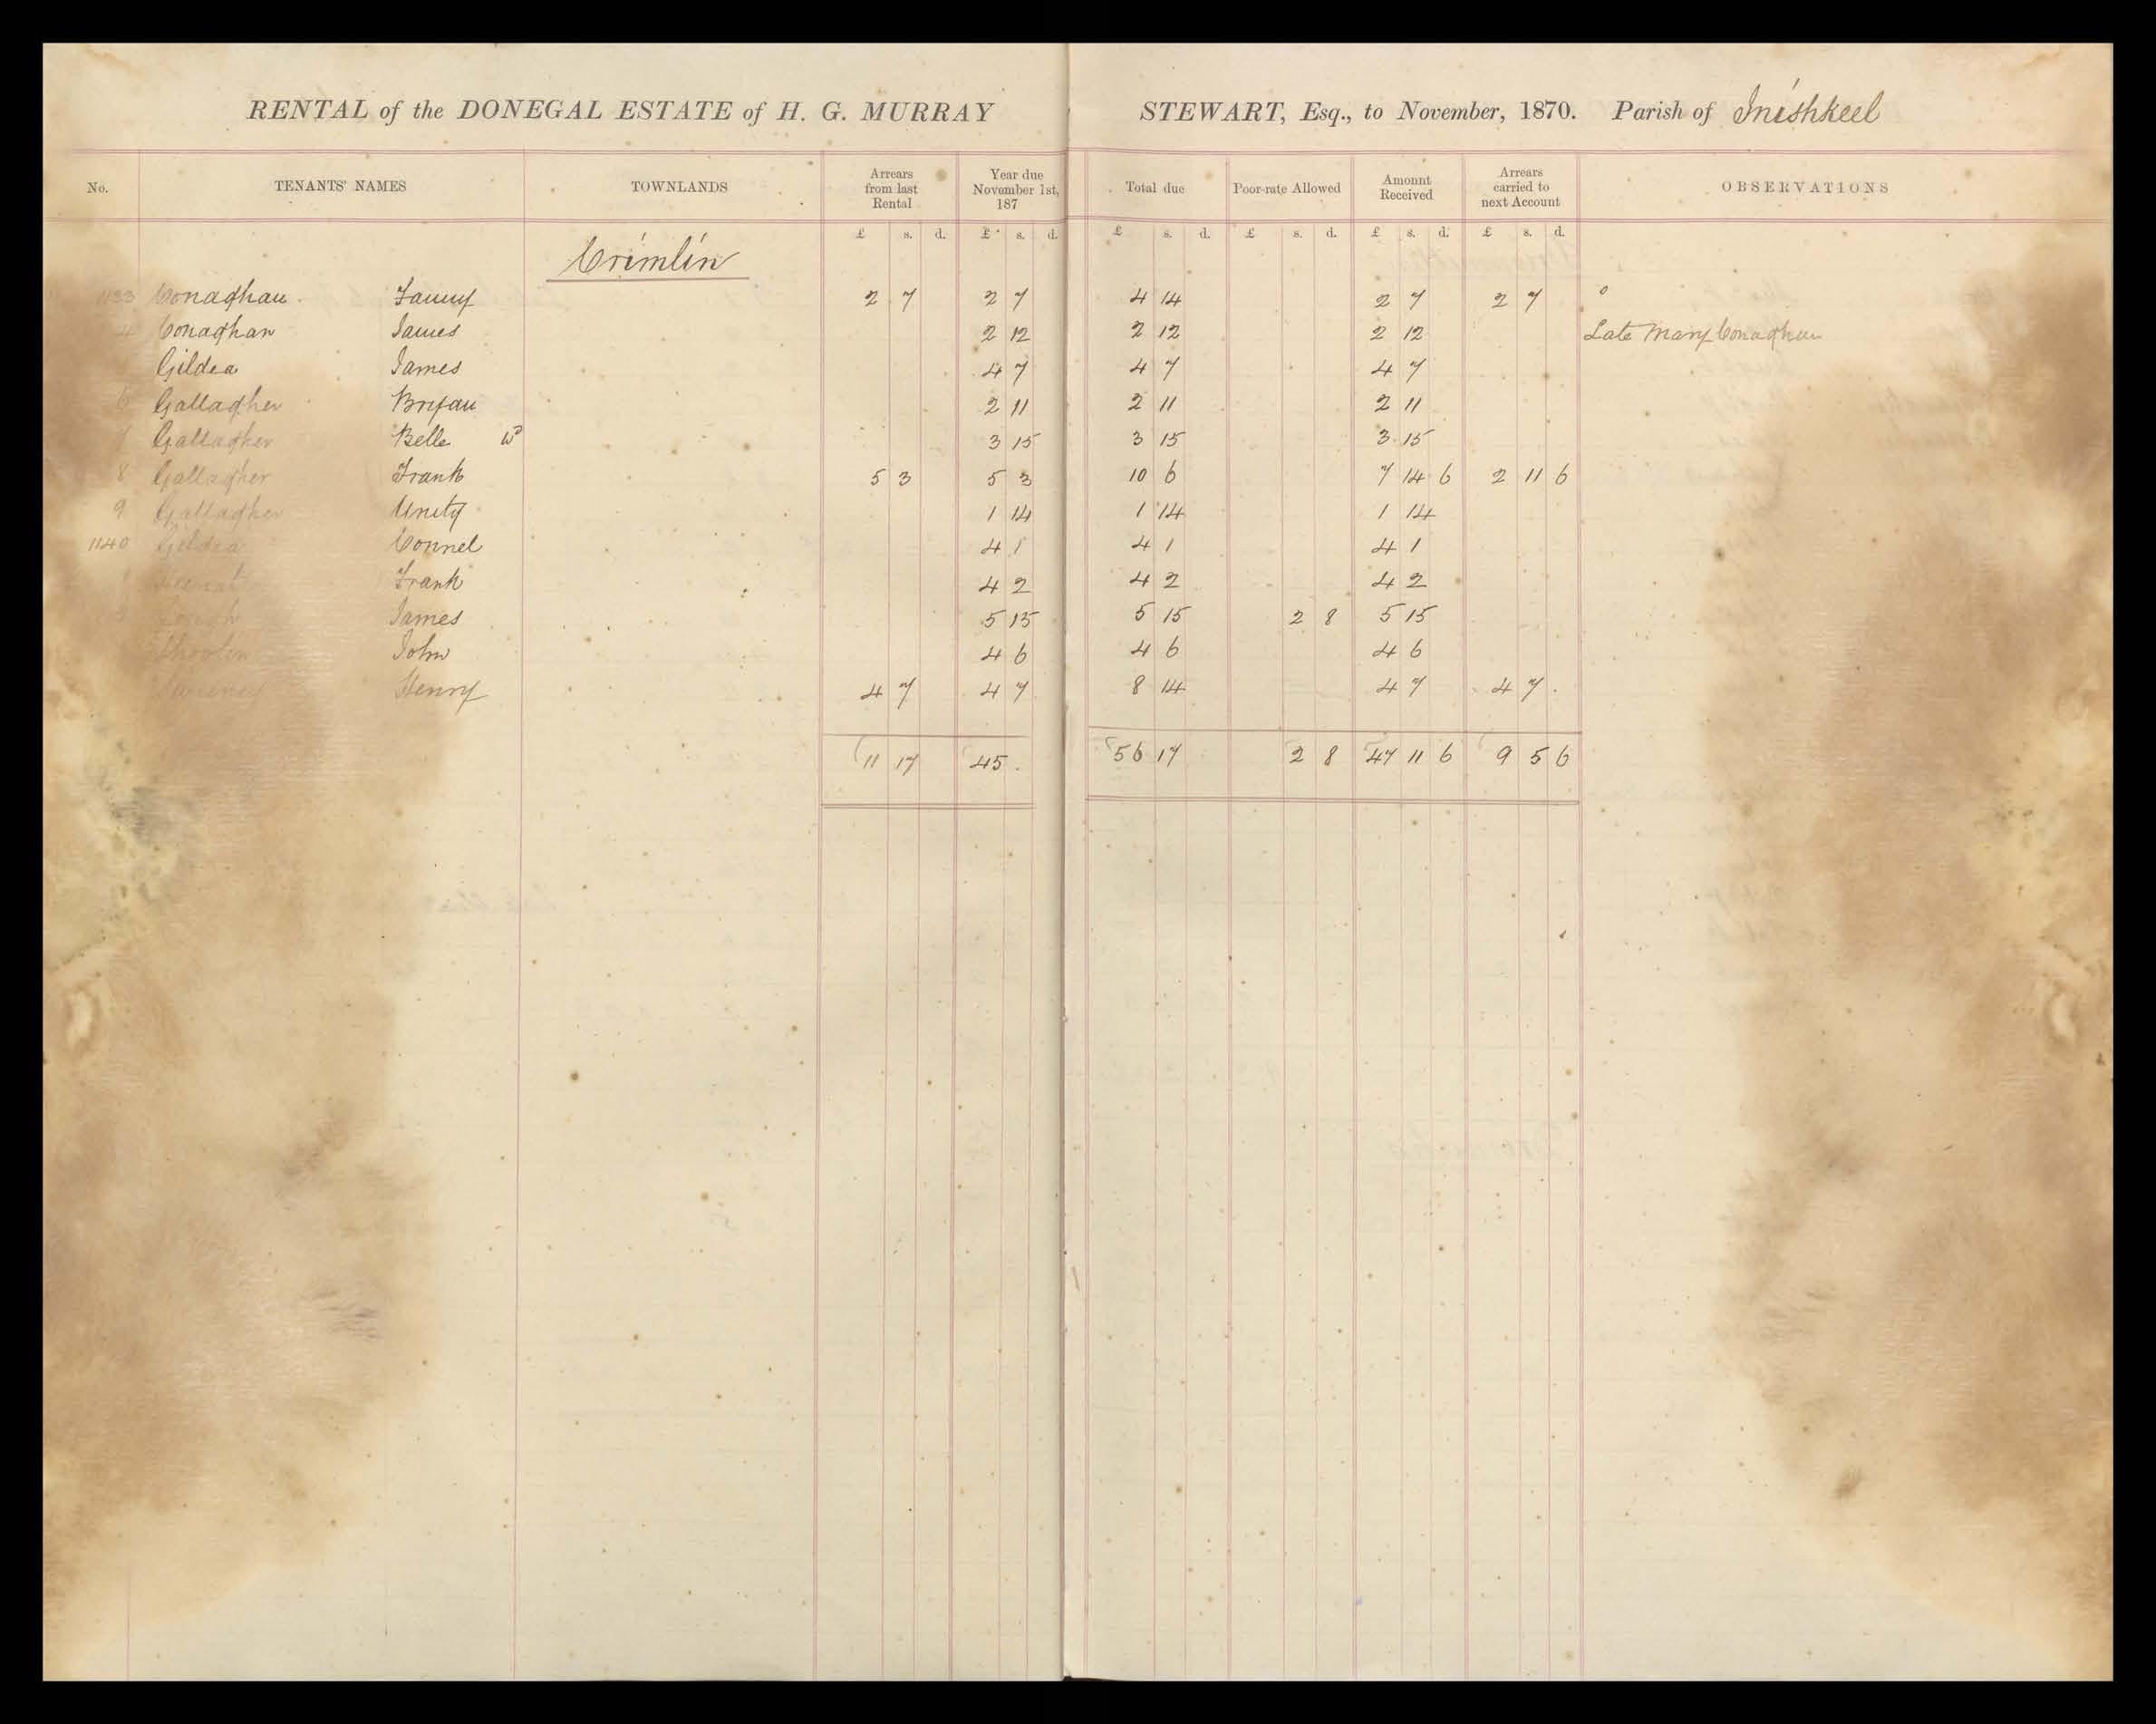 RENTAL of the DONEGAL ESTATE of H. G. MURRAY STEWART, Esq., to November, 1870. Parish of Inishkeel
No. TENANTS' NAMES TOWNLANDS Arrears from last Rental Year due November 1st, 187 Total due Poor-rate Allowed Amount Received Arrears carried to next Account OBSERVATIONS
£ s. d. £ s. d. £ s. d. £ s. d. £ s. d. £ s. d.
Crimlin
1133 Conaghan Fanny 2 7 2 7 4 14 2 7 2 7
4 Conaghan James 2 12 2 12 2 12 Late Mary Conaghan
Gildea James 4 7 4 7 4 7
6 Gallagher Bryan 2 11 2 11 2 11
7 Gallagher Belle Wd 3 15 3 15 3 15
8 Gallagher Frank 5 3 5 3 10 6 7 14 6 2 11 6
9 Gallagher Unity 1 14 1 14 1 14
1140 Gildea Connel 4 1 4 1 4 1
Frank 4 2 4 2 4 2
James 5 15 5 15 2 8 5 15
John 4 6 4 6 4 6
Henry 4 7 4 7 8 14 4 7 4 7
11 17 45 56 17 2 8 47 11 6 9 5 6